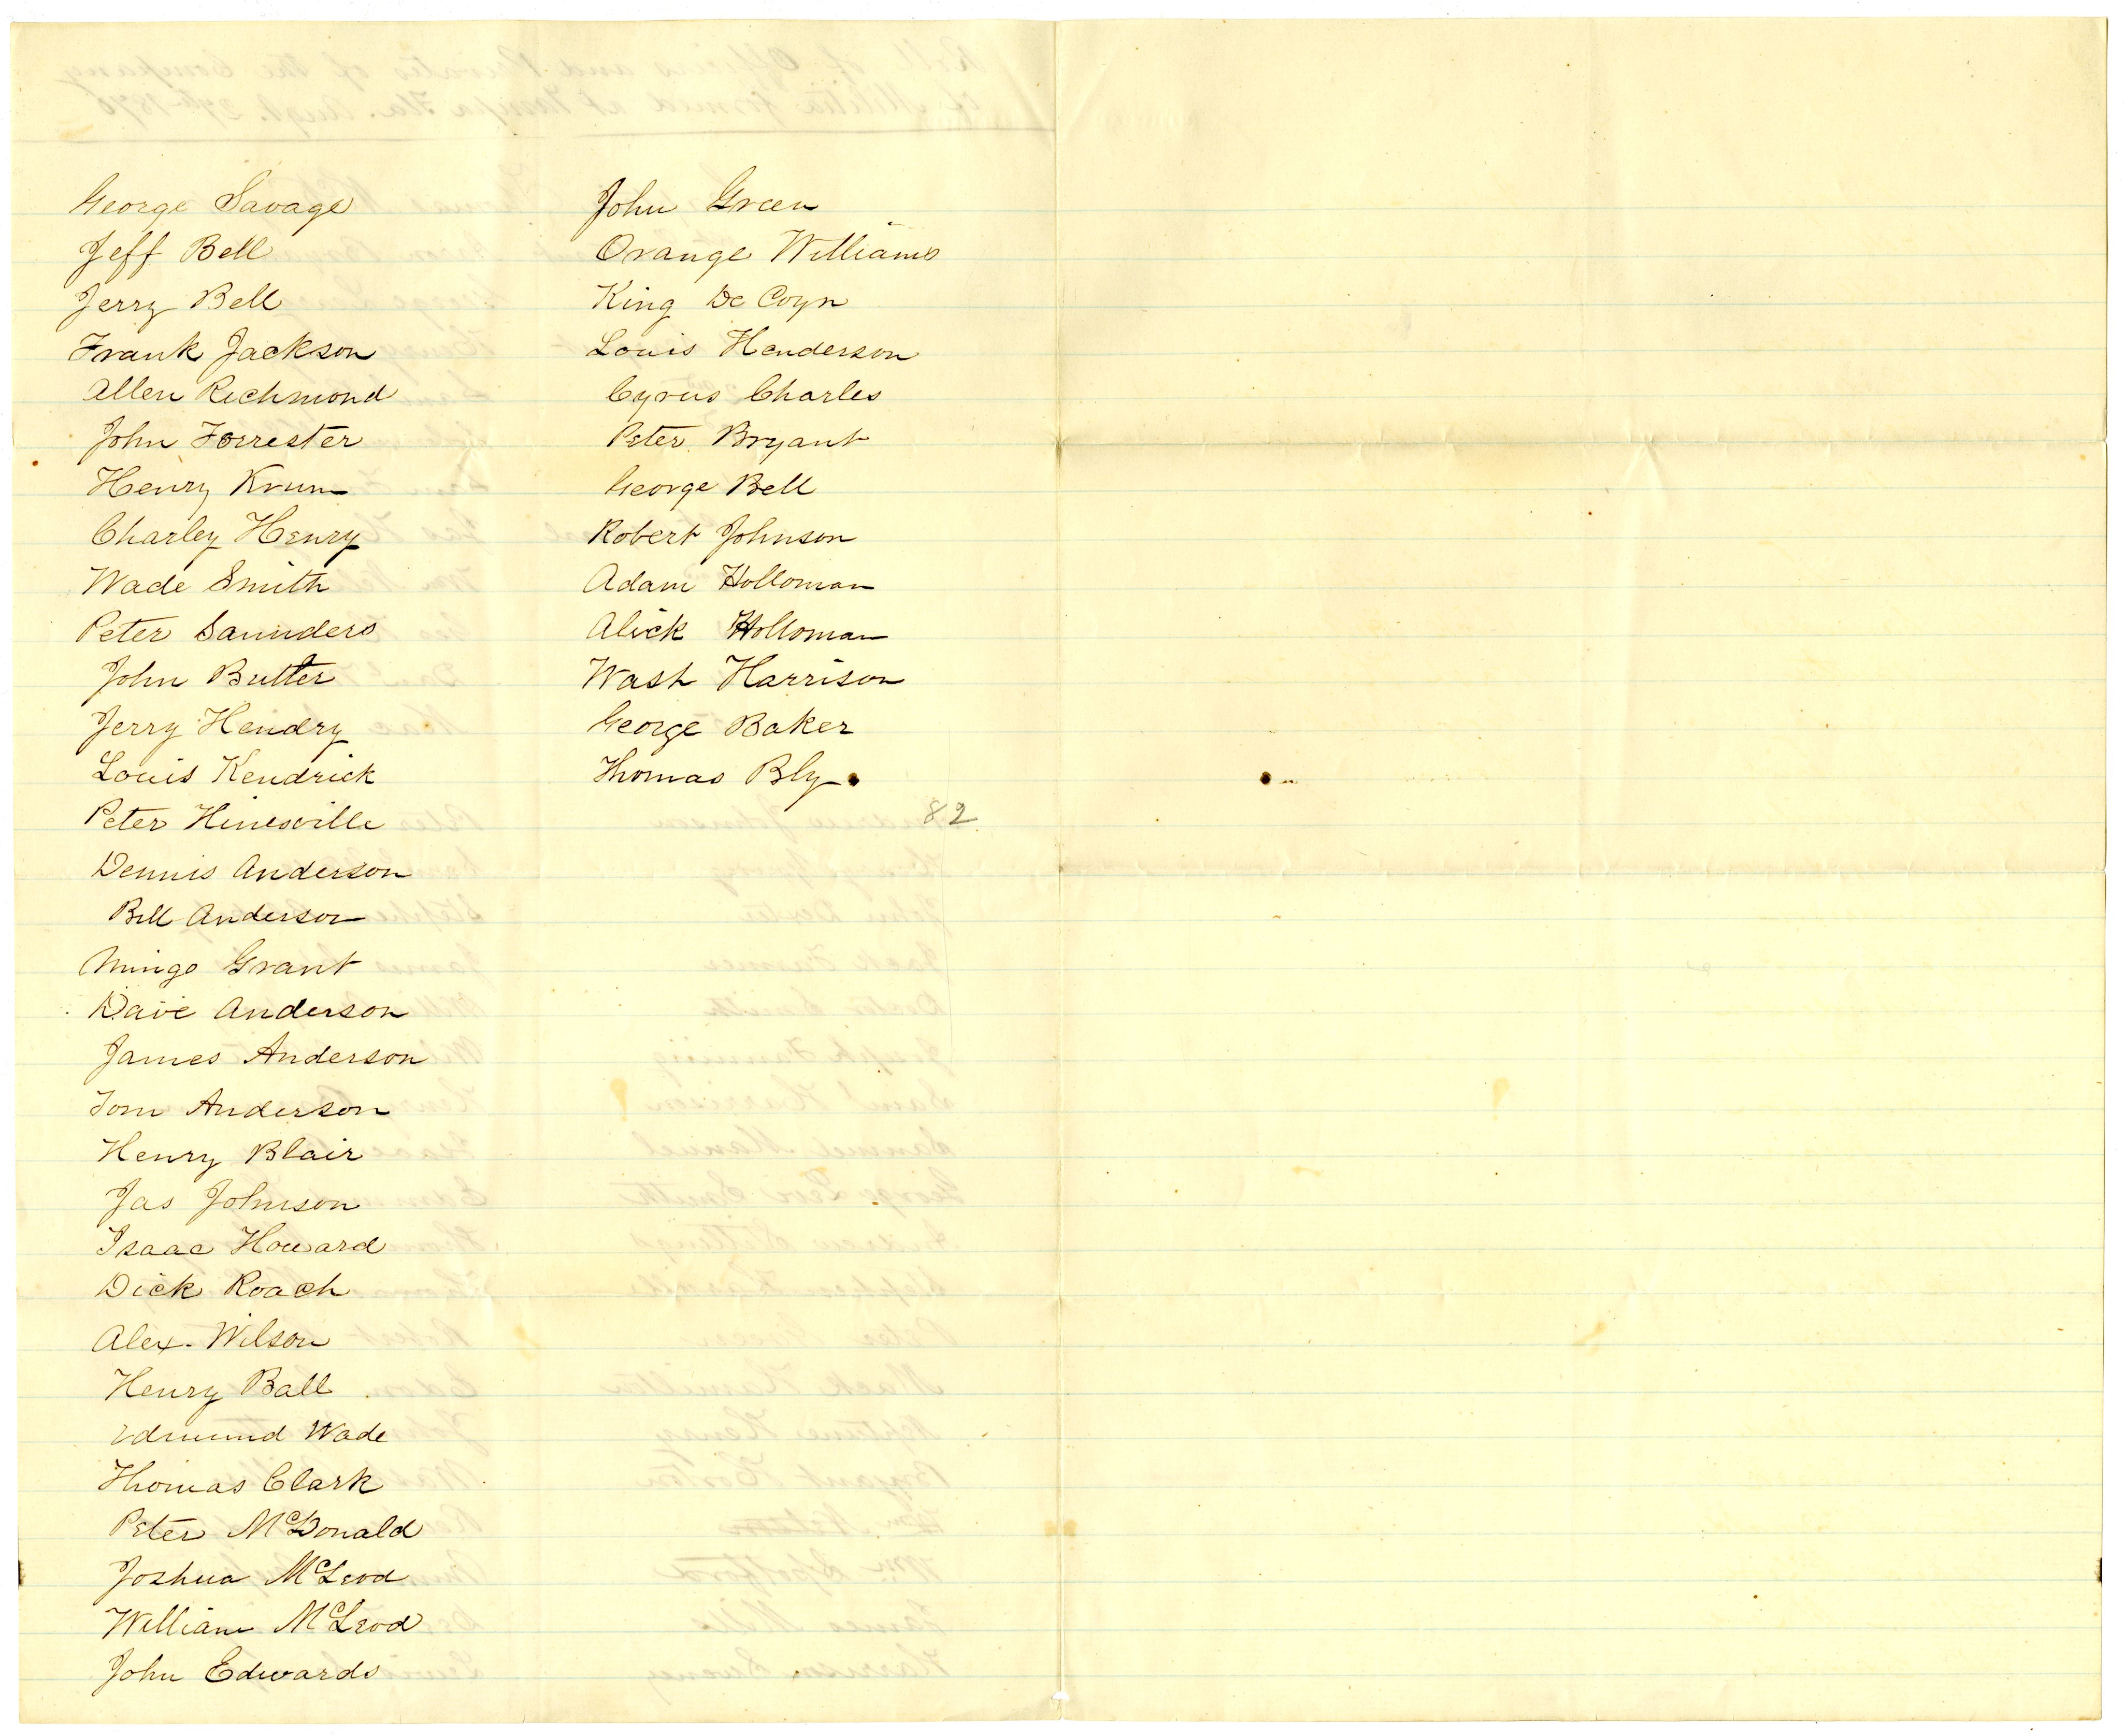 George Savage
Jeff Bell
Jerry Bell
Frank Jackson
Allen Richmond
John Forrester
Henry Krum
Charley Henry
Wade Smith
Peter Saunders
John Butter
Jerry Hendry
Louis Kendrick
Peter Hinesville
Dennis Anderson
Bill Anderson
Mingo Grant
Dave Anderson
James Anderson
Tom Anderson
Henry Blair
Jas Johnson
Isaac Howard
Dick Roach
Alex. Wilson
Henry Ball
Edmund Wade
Thomas Clark
Peter McDonald
Joshua McLeod
William McLeod
John Edwards
John Green
Orange Williams
King De Coyn
Louis Henderson
Cyrus Charles
Peter Bryant
George Bell
Robert Johnson
Adam Holloman
Alick Holloman
Wash Harrison
George Baker
Thomas Bly.
82